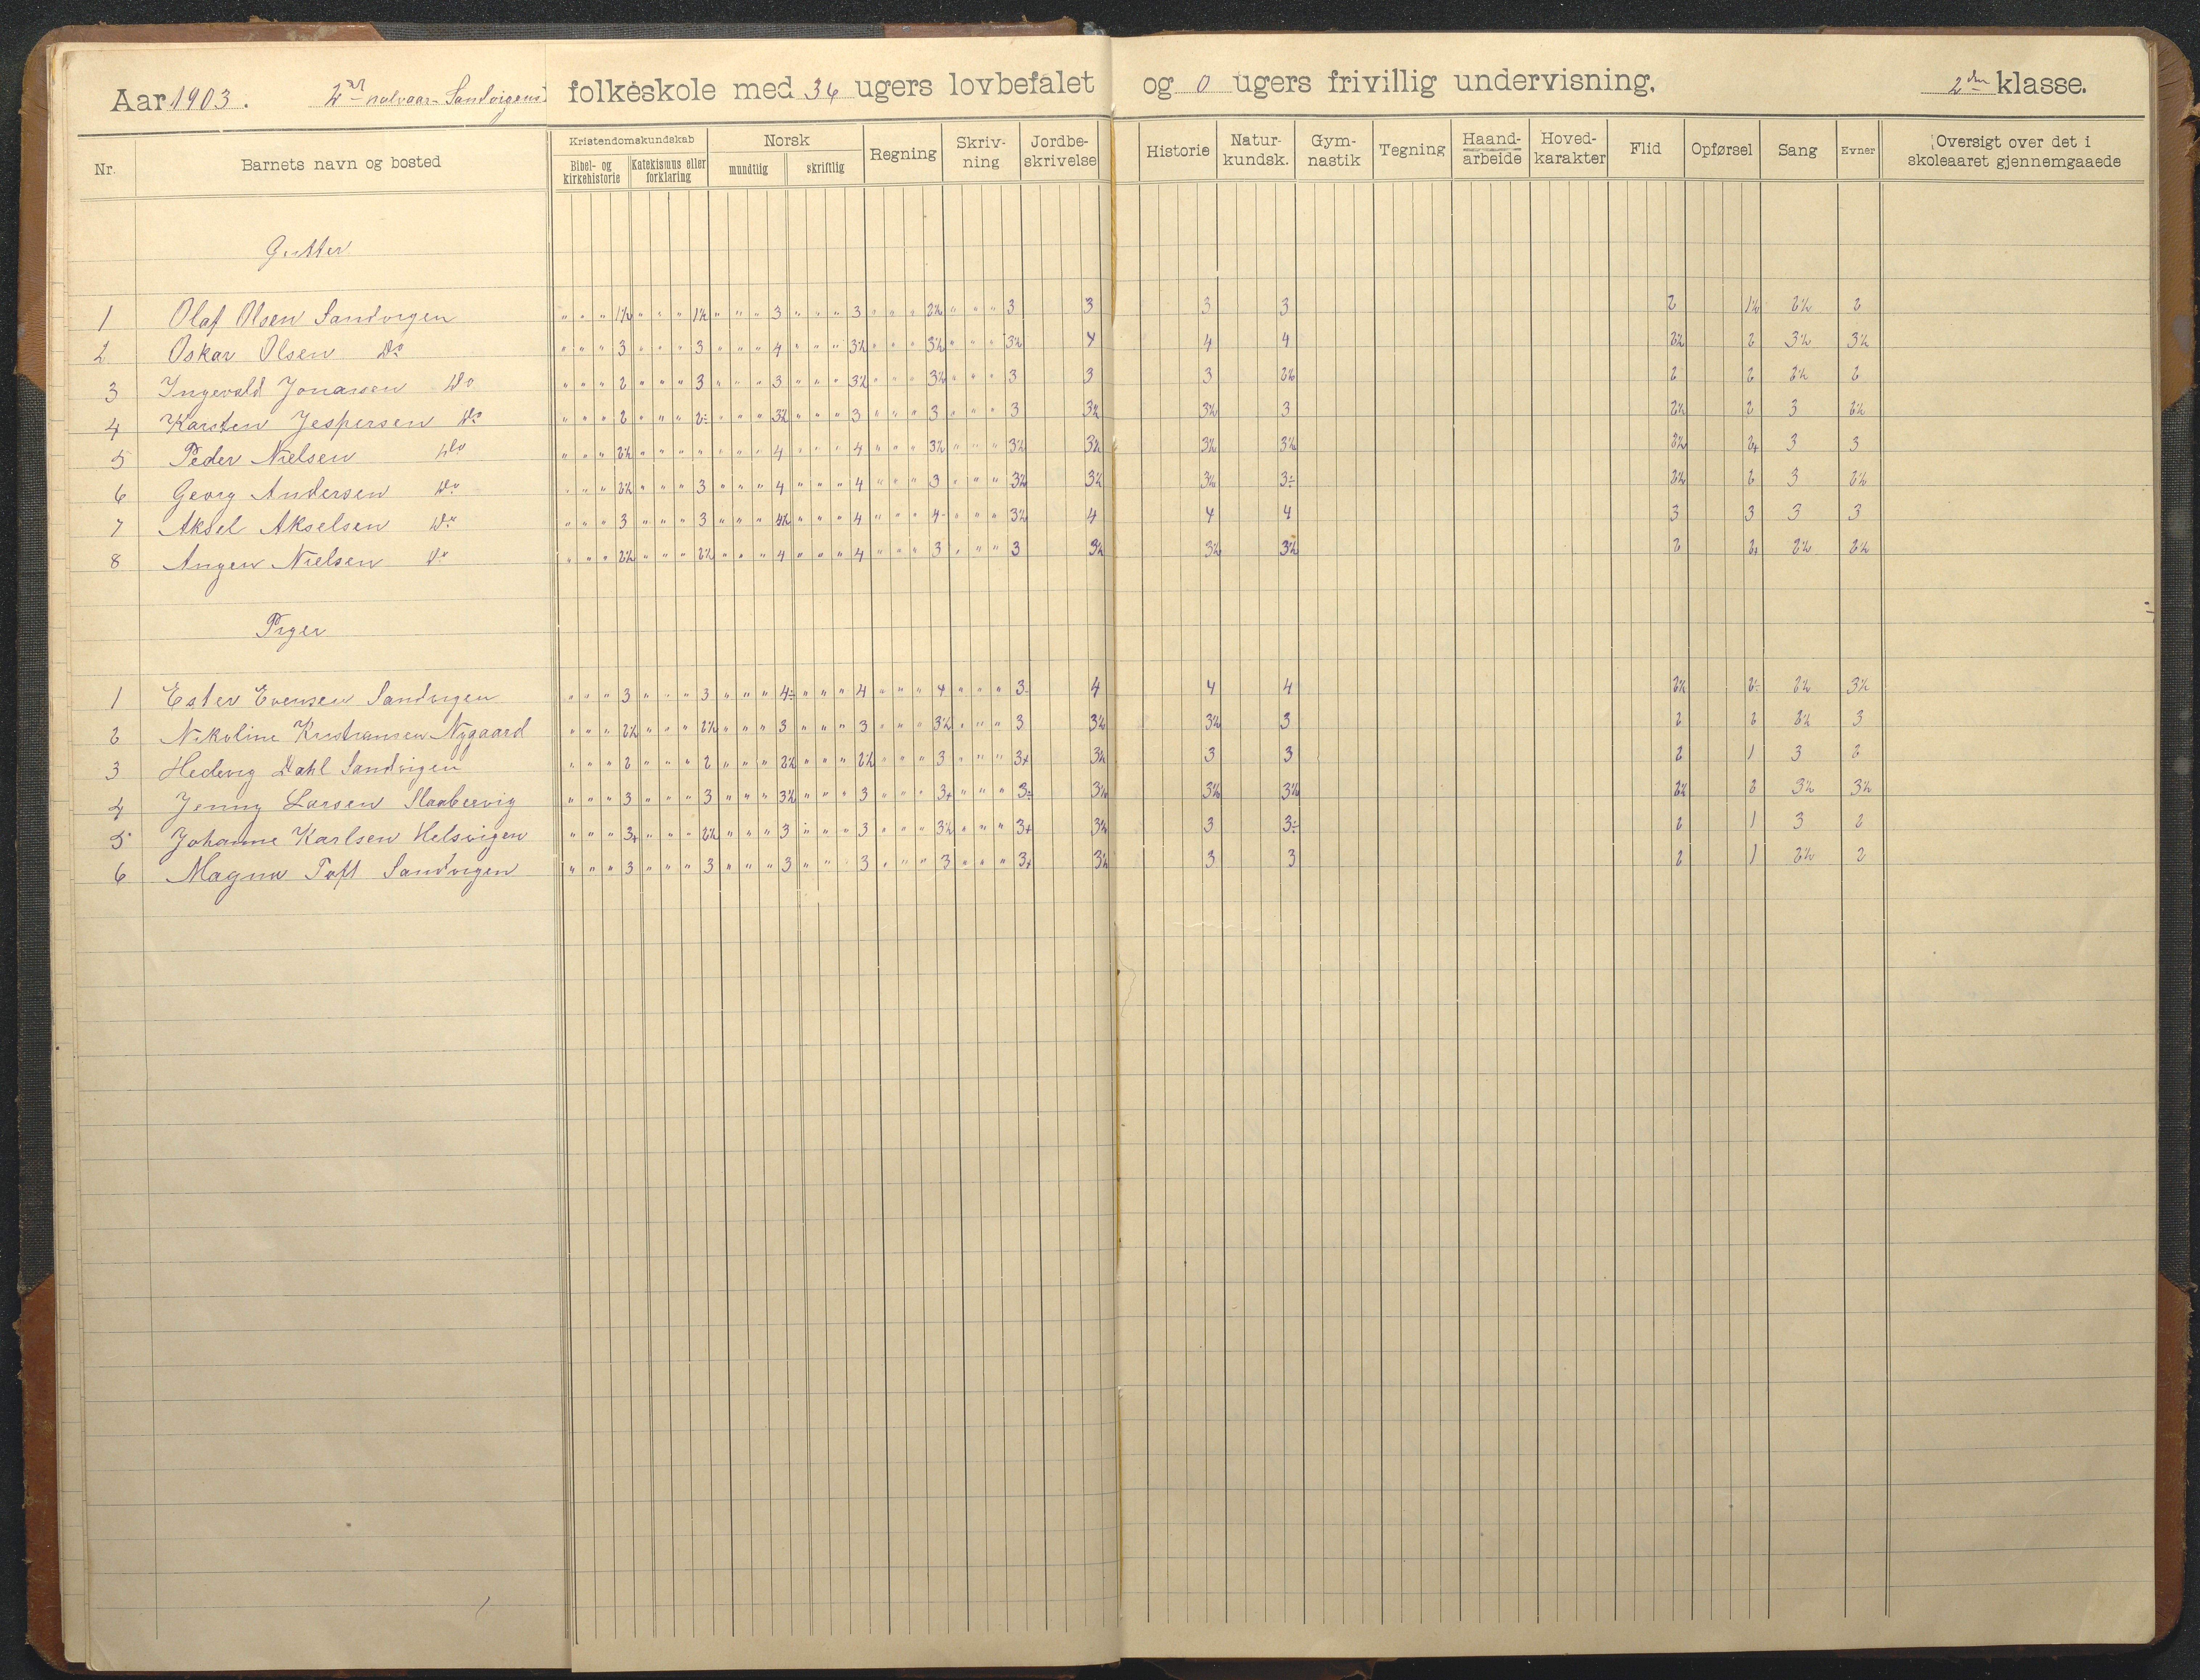 Aar 1903. 2det halvaar Sandvigens folkeskole med 36 ugers lovbefalet og 0 ugers frivillig undervisning. 2den klasse.
Nr. Barnets navn og bosted Kristendomskundskab Bibel- og kirkehistorie Katekismus eller forklaring Norsk mundtlig skriftlig Regning Skriv-ning Jordbe-skrivelse Historie Natur-kundsk. Gym-nastik Tegning Haand-arbeide Hoved-karakter Flid Opførsel Sang Evner Oversigt over det i skoleaaret gjennemgaaede
Gutter
1 Olaf Olsen Sandvigen " " " 1½ " " " 1½ " " " 3 " " " 3 " " " 2½ " " " 3 3 3 3 2 1½ 2½ 2
2 Oskar Olsen Do " " " 3 " " " 3 " " " 4 " " " 3½ " " " 3½ " " " 3½ 4 4 4 2½ 2 3½ 3½
3 Ingevald Jonassen Do " " " 2 " " " 3 " " " 3 " " " 3½ " " " 3½ " " " 3 3 3 2½ 2 2 2½ 2
4 Karsten Jespersen Do " " " 2 " " " 2÷ " " " 3½ " " " 3 " " " 3 " " " 3 3½ 3½ 3 2½ 2 3 2½
5 Peder Nielsen Do " " " 2½ " " " " " " " 4 " " " 4 " " " 3½ " " " 3½ 3½ 3½ 3½ 2½ 2+ 3 3
6 Georg Andersen Do " " " 2½ " " " 3 " " " 4 " " " 4 " " " 3 " " " 3½ 3½ 3½ 3÷ 2½ 2 3 2½
7 Aksel Akselsen Do " " " 3 " " " 3 " " " 4½ " " " 4 " " " 4- " " " 3½ 4 4 4 3 3 3 3
8 Angen Nielsen Do " " " 2½ " " " 2½ " " " 4 " " " 4 " " " 3 " " " 3 3½ 3½ 3½ 2 2+ 2½ 2½
Piger
1 Ester Evensen Sandvigen " " " 3 " " " 3 " " " 4÷ " " " 4 " " " 4 " " " 3- 4 4 4 2½ 2÷ 2½ 3½
2 Nikoline Kristiansen Nygaard " " " 2½ " " " 2½ " " " 3 " " " 3 " " " 3½ " " " 3 3½ 3½ 3 2 2 2½ 3
3 Hedevig Dahl Sandvigen " " " 2 " " " 2 " " " 2½ " " " 2½ " " " 3 " " " 3+ 3½ 3 3 2 1 3 2
4 Jenny Larsen Slaabervig " " " 3 " " " 3 " " " 3½ " " " 3 " " " 3+ " " " 3÷ 3½ 3½ 3½ 2½ 2 3½ 3½
5 Johanne Karlsen Helsvigen " " " 3+ " " " 2½ " " " 3 " " " 3 " " " 3½ " " " 3+ 3½ 3 3÷ 2 1 3 2
6 Magna Toft Sandvigen " " " 3 " " " 3 " " " 3 " " " 3 " " " 3 " " " 3+ 3½ 3 3 2 1 2½ 2